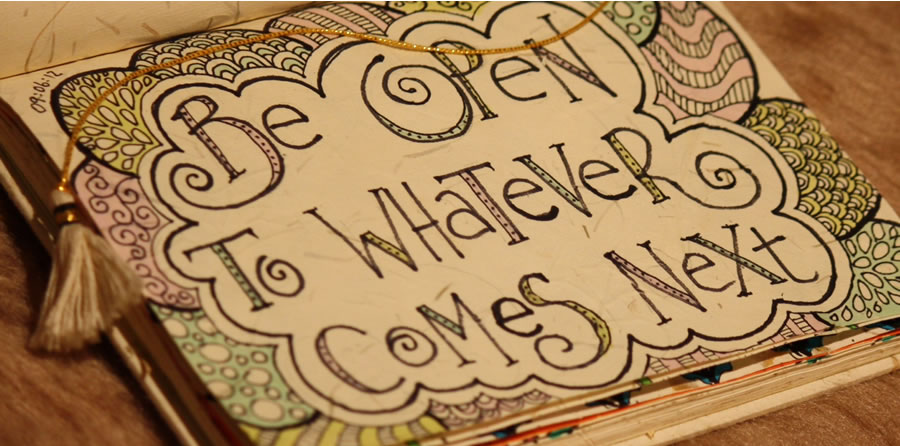 09:06:12
Be OPeN
To WHaTeVeR
CoMeS NeXt